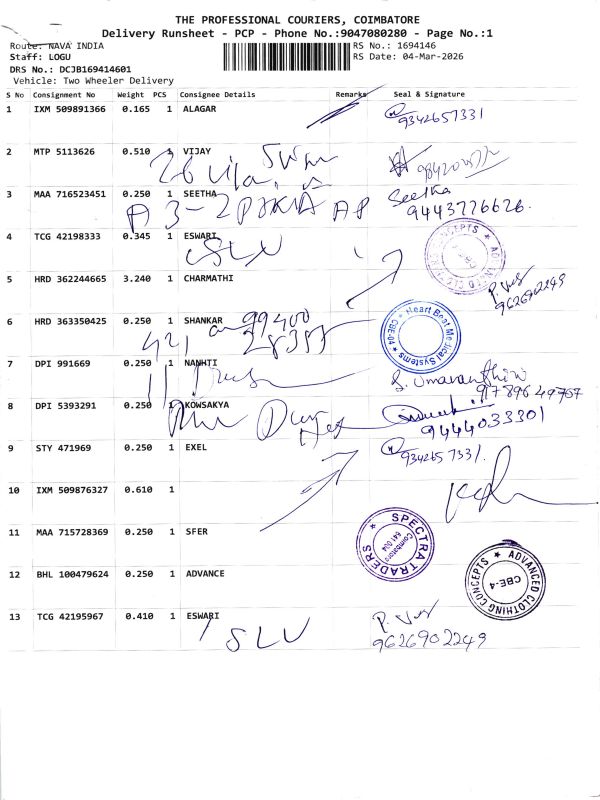 THE PROFESSIONAL COURIERS, COIMBATORE
Delivery Runsheet - PCP - Phone No.:9047080280 - Page No.:1
Route: NAVA INDIA
RS No.: 1694146
Staff: LOGU
RS Date: 04-Mar-2026
DRS No.: DCJB169414601
Vehicle: Two Wheeler Delivery
S No Consignment No Weight PCS Consignee Details Remarks Seal & Signature
1 IXM 509891366 0.165 1 ALAGAR
9342657331
2 MTP 5113626 0.510 1 VIJAY
3 MAA 716523451 0.250 1 SEETHA
Seetha
9443776626
4 TCG 42198333 0.345 1 ESWARI
SLV
ADVANCED CLOTHING CONCEPTS
5 HRD 362244665 3.240 1 CHARMATHI
9626902249
6 HRD 363350425 0.250 1 SHANKAR
99400
28357
Heart Beat Medical Systems
CBE-04
7 DPI 991669 0.250 1 NANHTI
8 DPI 5393291 0.250 1 KOWSAKYA
9444033301
9 STY 471969 0.250 1 EXEL
9342657331
10 IXM 509876327 0.610 1
11 MAA 715728369 0.250 1 SFER
SPECTRA TRADERS
Coimbatore
641 004
12 BHL 100479624 0.250 1 ADVANCE
ADVANCED CLOTHING CONCEPTS
CBE-4
13 TCG 42195967 0.410 1 ESWARI
SLV
9626902249